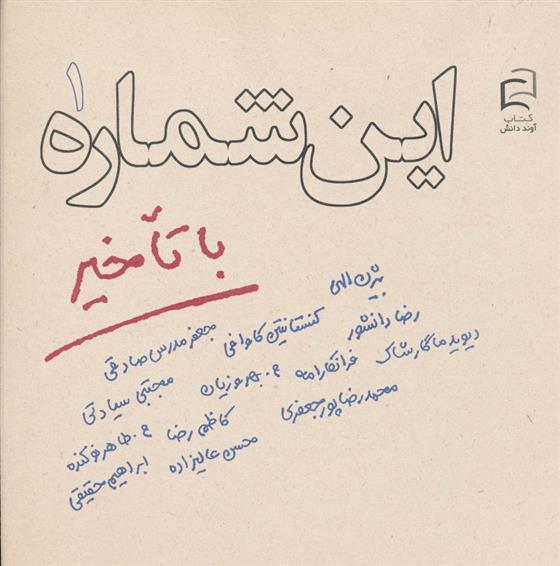 ۱
این شماره
کتاب
آوند دانش
با تأخیر
بیژن الهی
جعفر مدرس صادقی کنستانتین کاوافی رضا دانشور
مجتبی سیادتی ع. بهروزیان فرانکلرامه دیوید ماگارشاک
ع. طاهر نوکنده کاظم رضا محمدرضا پورجعفری
ابراهیم حقیقی محسن عالیزاده